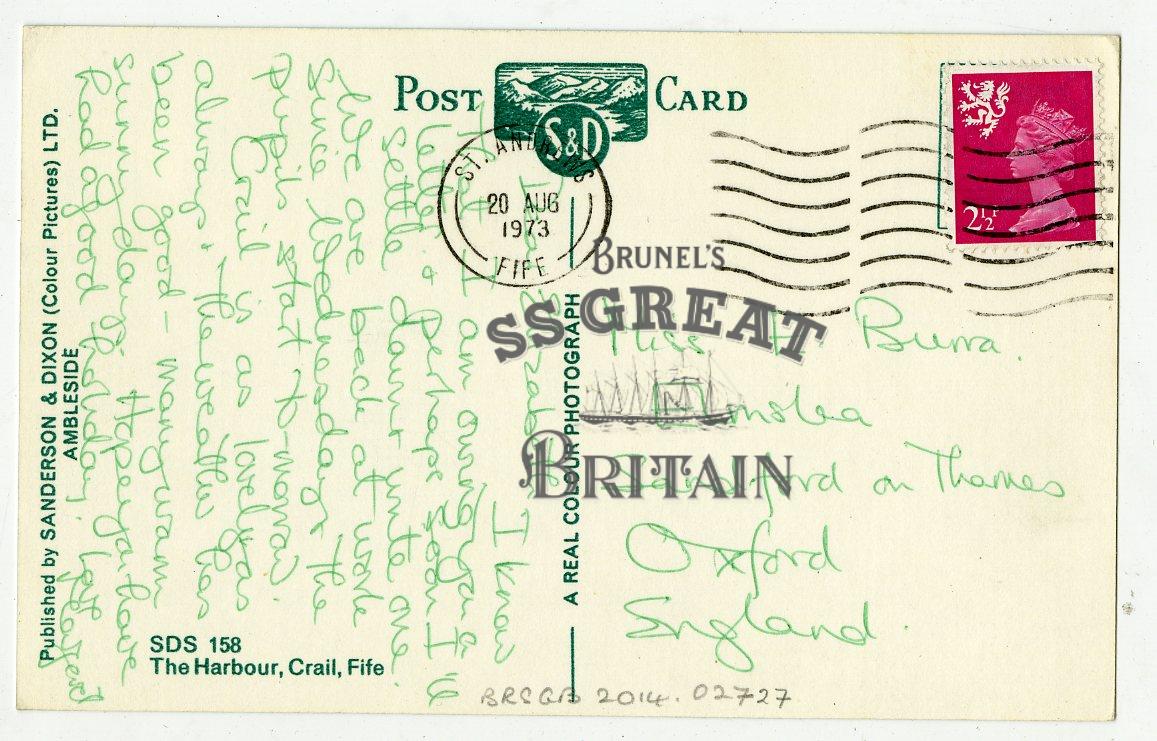 POST CARD
S&D
ST. ANDREWS
20 AUG
1973
FIFE
2½P
Dear Elizabeth
I know
that I am owing you a
letter & perhaps soon I'll
settle down & write one.
We are back at work
since Wednesday & the
pupils start to-morrow.
Crail is as lovely as
always & the weather has
been good - many warm
sunny days. Hope you have
had a good holiday. Love
Miss Burra.
Sandford on Thames
Oxford
England.
Published by SANDERSON & DIXON (Colour Pictures) LTD.
AMBLESIDE
A REAL COLOUR PHOTOGRAPH
SDS 158
The Harbour, Crail, Fife
BRSGB 2014.02727
BRUNEL'S
SS GREAT
BRITAIN